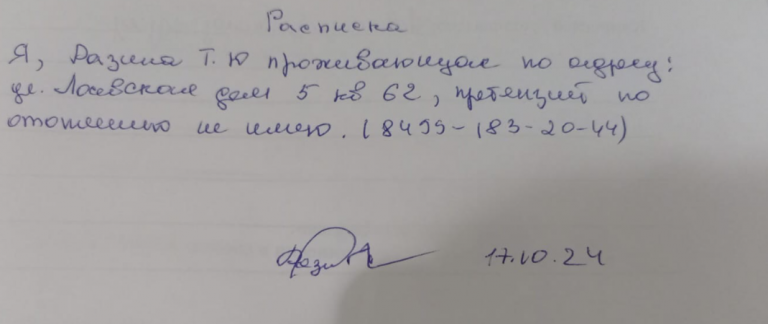 Расписка
Я, Разина Т.Ю проживающая по адресу:
ул. Лосевская дом 5 кв 62, претензий по
отоплению не имею. (8499-183-20-44)
17.10.24